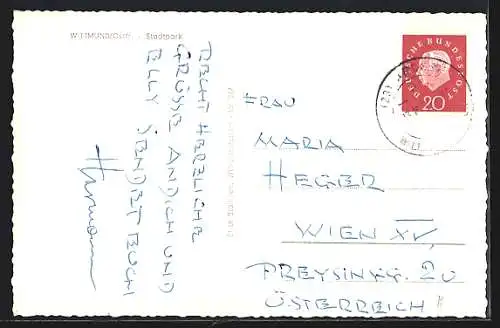 WITTMUND/Ostfr. - Stadtpark
RECHT HERZLICHE
GRÜSSE AN DICH UND
ELLY SENDET EUCH
Hermann
DEUTSCHE BUNDESPOST
20
FRAU
MARIA
HEGER
WIEN XV,
PREYSINGG. 20
ÖSTERREICH